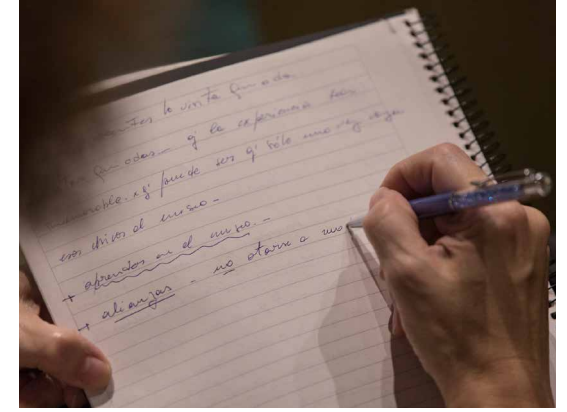 la visita guiada.
guiadas — y la experiencia
q' puede ser q' sólo una vez vayan
esos chicos al museo —
+ aprender en el museo. —
+ alianzas — no atarse a una